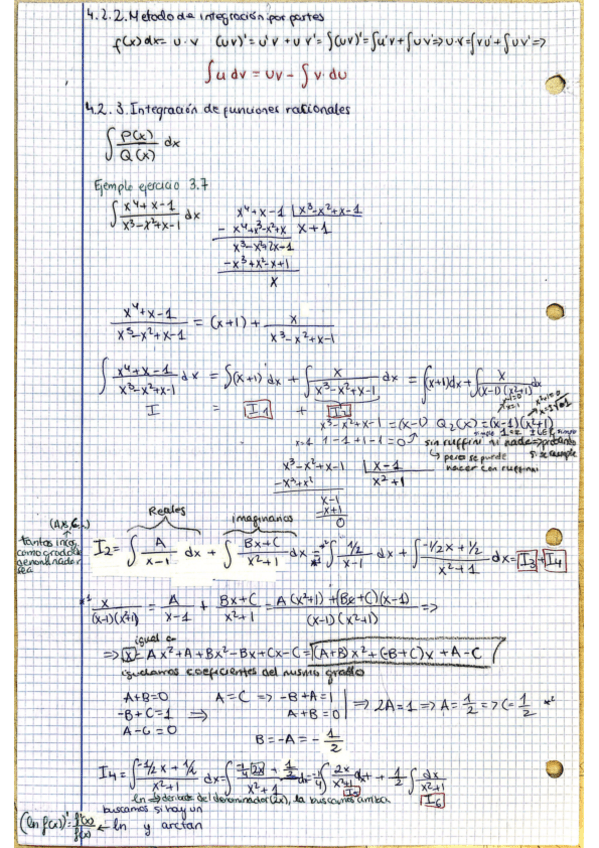 4.2.2. Metodo de integración por partes
f(x)dx = u · v (uv)' = u'v + uv' = ∫(uv)' = ∫u'v + ∫uv' => u·v = ∫vu' + ∫uv' =>
∫u dv = uv - ∫v·du
4.2.3. Integración de funciones racionales
∫ P(x)/Q(x) dx
Ejemplo ejercicio 3.7
∫ (x⁴+x-1)/(x³-x²+x-1) dx
x⁴+x-1 | x³-x²+x-1
- x⁴+x³-x²+x x+1
x³-x²+2x-1
-x³+x²-x+1
x
(x⁴+x-1)/(x³-x²+x-1) = (x+1) + x/(x³-x²+x-1)
∫ (x⁴+x-1)/(x³-x²+x-1) dx = ∫(x+1)dx + ∫ x/(x³-x²+x-1) dx = ∫(x+1)dx + ∫ x/((x-1)(x²+1)) dx
I = I1 +
x³-x²+x-1 = (x-1) Q₂(x) = (x-1)(x²+1)
x=1 1-1+1-1=0 sin ruffini ni nada => probando
pero se puede si se cumple
hacer con ruffini
x³-x²+x-1 | x-1
-x³+x² x²+1
x-1
-x+1
0
Reales imaginarios
tantas incog.
como grado de
denominador
sea
I2 = ∫ A/(x-1) dx + ∫ (Bx+C)/(x²+1) dx = ∫ (1/2)/(x-1) dx + ∫ (-1/2x+1/2)/(x²+1) dx = I3 + I4
*¹ x/((x-1)(x²+1)) = A/(x-1) + (Bx+C)/(x²+1) = (A(x²+1)+(Bx+C)(x-1))/((x-1)(x²+1)) =>
igual a
=> x = Ax²+A+Bx²-Bx+Cx-C = (A+B)x²+(-B+C)x+A-C
igualamos coeficientes del mismo grado
A+B=0 A=C => -B+A=1
-B+C=1 => A+B=0 => 2A=1 => A=1/2 => C=1/2 *²
A-C=0
B=-A=-1/2
I4 = ∫ (-1/2x+1/2)/(x²+1) dx = ∫ (-1/4 2x + 1/2)/(x²+1) dx = -1/4 ∫ 2x/(x²+1) dx + 1/2 ∫ dx/(x²+1)
ln => derivada del denominador (2x), la buscamos arriba I5 I6
buscamos si hay un
(ln f(x))' = f'(x)/f(x) ← ln y arctan